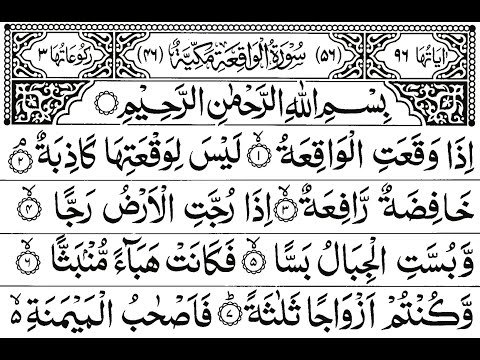 اٰيَاتُهَا ٩٦ (٥٦) سُوْرَةُ الْوَاقِعَةِ مَكِّيَّةٌ (٤٦) رُكُوْعَاتُهَا ٣
بِسْمِ اللهِ الرَّحْمٰنِ الرَّحِيْمِ
اِذَا وَقَعَتِ الْوَاقِعَةُ ۙ﴿١﴾ لَيْسَ لِوَقْعَتِهَا كَاذِبَةٌ ۘ﴿٢﴾
خَافِضَةٌ رَّافِعَةٌ ۙ﴿٣﴾ اِذَا رُجَّتِ الْاَرْضُ رَجًّا ۙ﴿٤﴾
وَّ بُسَّتِ الْجِبَالُ بَسًّا ۙ﴿٥﴾ فَكَانَتْ هَبَآءً مُّنْۢبَثًّا ۙ﴿٦﴾
وَّ كُنْتُمْ اَزْوَاجًا ثَلٰثَةً ؕ﴿٧﴾ فَاَصْحٰبُ الْمَيْمَنَةِ ۙ۬